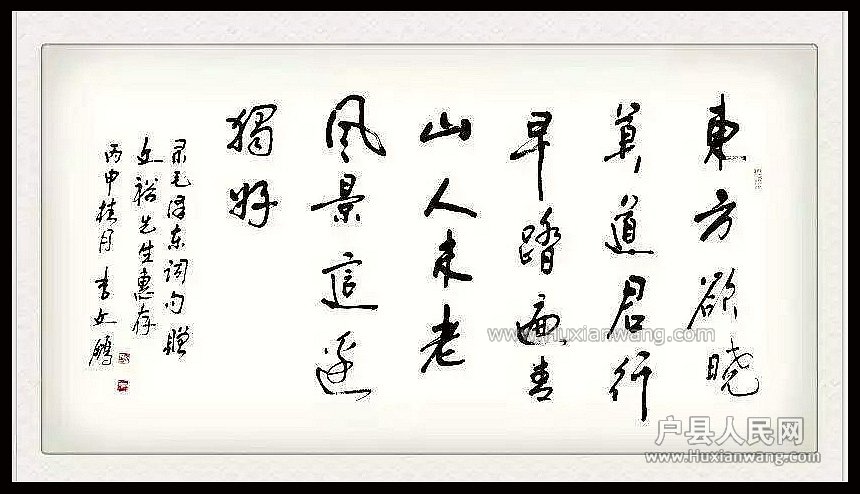 東方欲曉
莫道君行
早踏遍青
山人未老
風景這邊
獨好
录毛泽东词句赠
裕先生惠存
丙申桂月 李文鹏
www.Huxianwang.com
户县人民网
www.Huxianwang.com